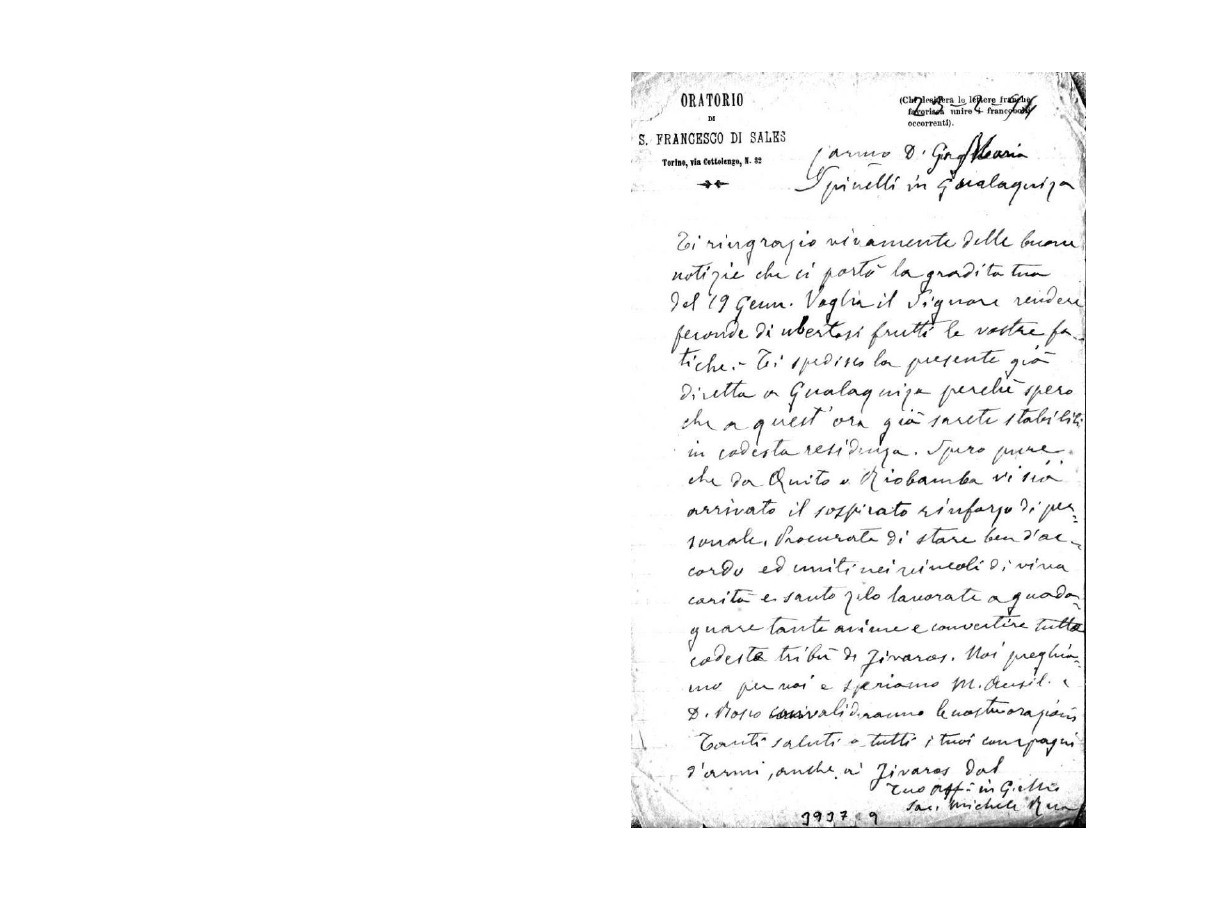 ORATORIO
DI
S. FRANCESCO DI SALES
Torino, via Cottolengo, N. 32
(Chi desidera le lettere franche
favorisca unire i francobolli
occorrenti).
Carmo D.
Spinelli in Gualaquiza
Ti ringrazio vivamente delle buone
notizie che ci portò la gradita tua
del 19 Genn. Voglia il Signore rendere
feconde di ubertosi frutti le vostre fa-
tiche. - Ti spedisco la presente già
diretta a Gualaquiza perchè spero
che a quest'ora già sarete stabiliti
in codesta residenza. Spero pure
che da Quito e Riobamba vi sia
arrivato il sospirato rinforzo di per=
sonale. Procurate di stare ben d'ac=
cordo ed uniti nei vincoli di viva
carità e santo zelo lavorate a guada=
gnare tante anime e convertire tutta
codesta tribù di Jivaros. Noi preghia=
mo per voi e speriamo M. Ausil. e
D. Bosco convalideranno le nostre orazioni
Tanti saluti a tutti i tuoi compagni
d'armi, anche ai Jivaros dal
Tuo aff. in G. e M.
Sac. Michele Rua
3937 9